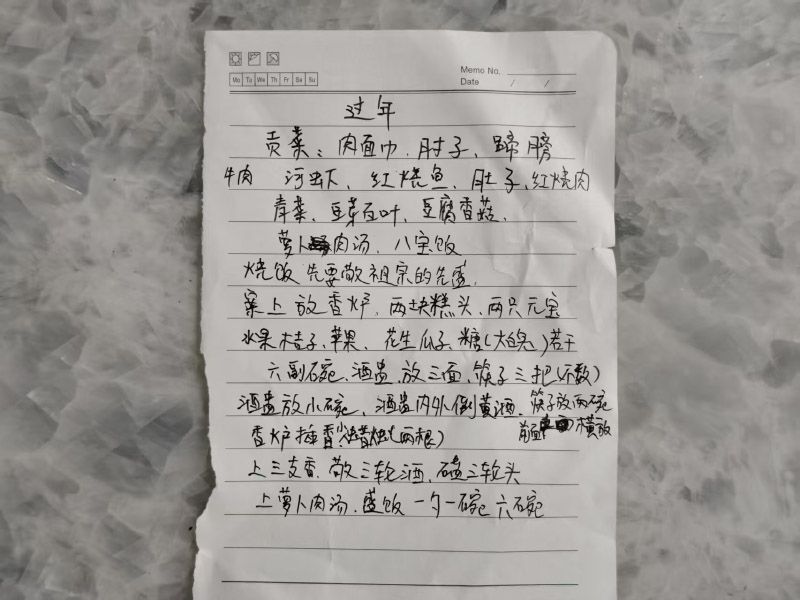 Mo Tu We Th Fr Sa Su
Memo No.
Date / /
过年
贡菜：肉面巾、肘子、蹄膀
牛肉 河虾、红烧鱼、肚子、红烧肉
青菜、豆芽百叶、豆腐香菇、
萝卜肉汤、八宝饭
烧饭 先要敬祖宗的先盛
案上放香炉，两块糕头、两只元宝
水果桔子、苹果、花生瓜子、糖（大白兔）若干
六副碗、酒盅放三面、筷子三把（不数）
酒盅放小碗、酒盅内外倒黄酒、筷子放两碗
前面 横放
香炉插香（蜡烛两根）
上三支香、敬三轮酒、磕三轮头
上萝卜肉汤、盛饭一勺一碗 六碗